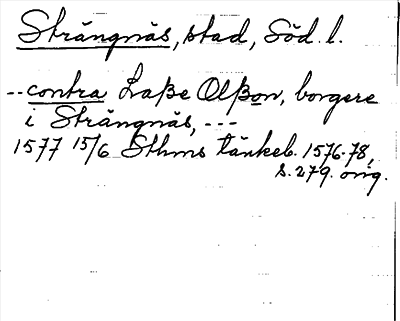 Strängnäs, stad, Söd. l.
-- contra Laße Olßon, borgere
i Strängnäs, ---
1577 15/6 Sthms tänkeb. 1576-78,
s. 279. orig.